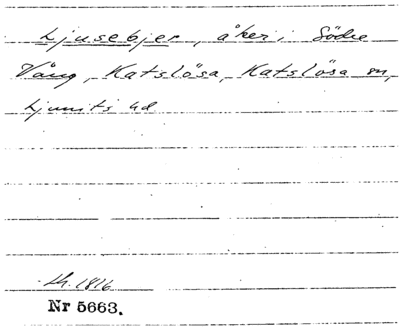 Ljusebjer, åker i Södre
Vång, Katslösa, Katslösa sn,
Ljunits hd
Lh. 1816
Nr 5663.